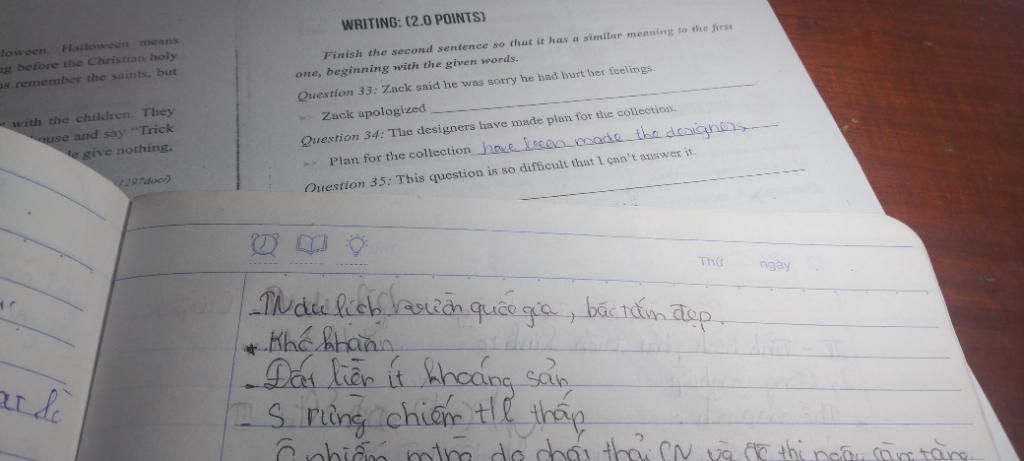 WRITING: (2.0 POINTS)
loween. Halloween means
ng before the Christian holy
as remember the saints, but
with the children. They
house and say "Trick
give nothing,
1297doc)
Finish the second sentence so that it has a similar meaning to the first
one, beginning with the given words.
Question 33: Zack said he was sorry he had hurt her feelings.
=> Zack apologized
Question 34: The designers have made plan for the collection.
=> Plan for the collection have been made the designers
Question 35: This question is so difficult that I can't answer it.
Thứ ngày
- TN du lịch vườn quốc gia, bãi tắm đẹp.
* Khó khăn
- Đất liền ít khoáng sản
- S rừng chiếm tỉ lệ thấp
Ô nhiễm mtrg do chất thải CN và đô thị ngày càng tăng